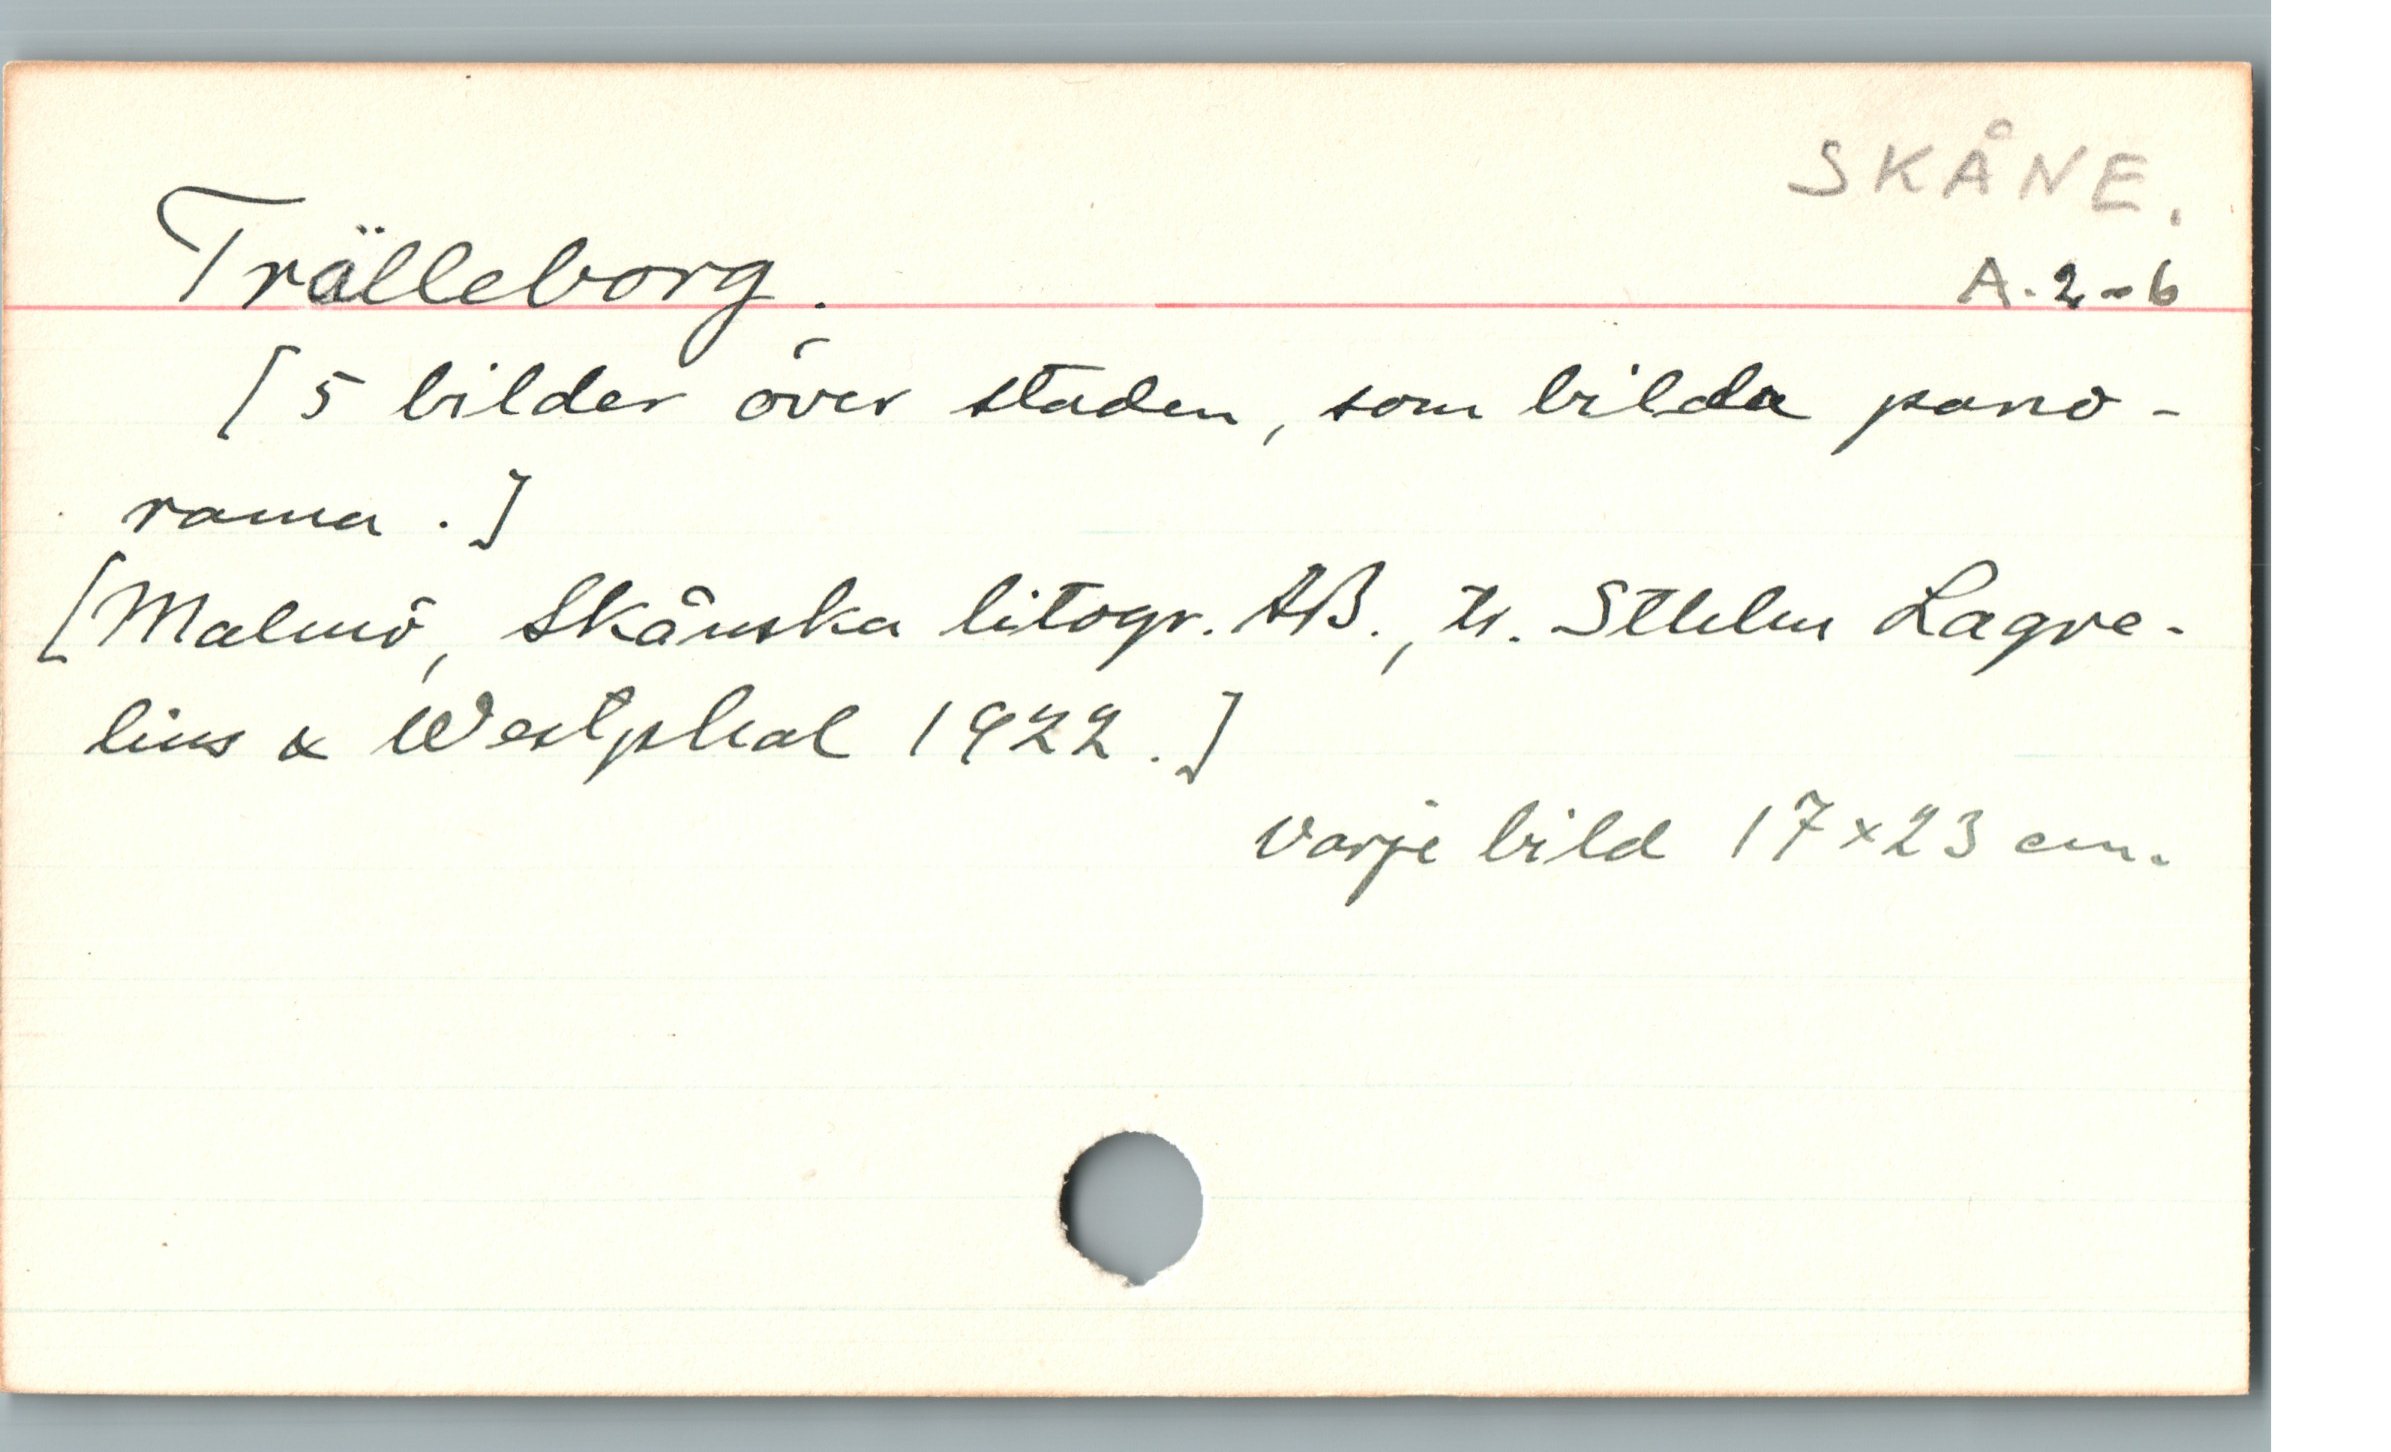 SKÅNE.
Trälleborg.
A.2-6
[5 bilder över staden, som bilda pano-
rama.]
[Malmö, Skånska litogr. AB., tr. Sthlm Lagre-
lius & Westphal 1922.]
varje bild 17×23 cm.